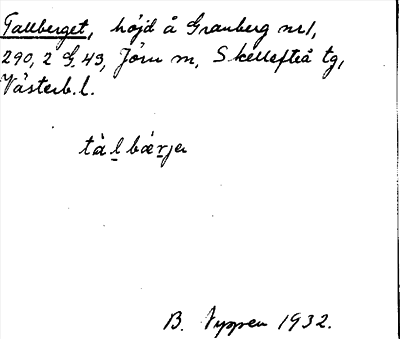 Tallberget, höjd å Granberg nr 1,
290, 2 G 43, Jörn sn, Skellefteå tg,
Västerb. l.
tàl bǽrjer
B. Nyppen 1932.